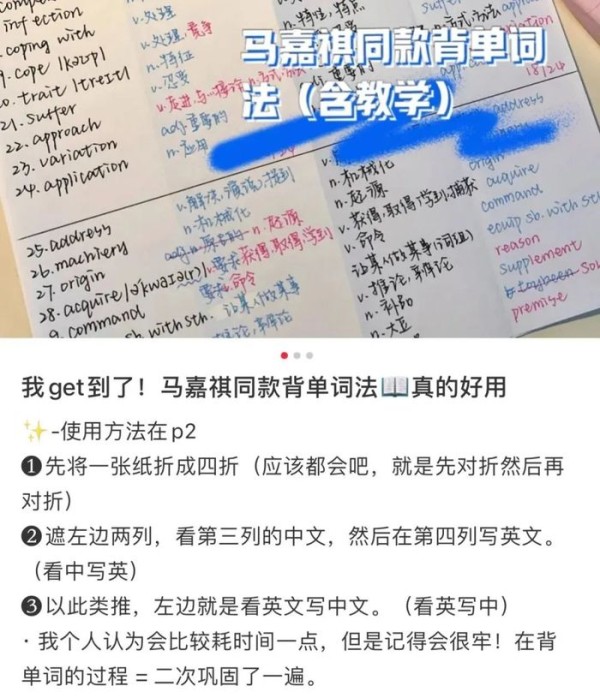 infection
coping with
9. cope /kəʊp/
20. trait /treɪt/
21. suffer
22. approach
23. variation
24. application
v.处理
n.特征
v.忍受
n.应用
n.特性,特点
variation
18/24
马嘉祺同款背单词
法（含教学）
25. address
26. machinery
27. origin
28. acquire /ə'kwaɪə(r)/
9. command
sb with sth.
n.机械化
v.获得,取得,学到
n.机械化
n.起源
v.获得,取得,学到,捕获
v.命令
让某人做某事(词组)
v.推论,辩论
n.补助
n.大豆
address
origin
acquire
command
equip sb. with sth
reason
supplement
premise
我get到了！马嘉祺同款背单词法📖真的好用
✨-使用方法在p2
❶先将一张纸折成四折（应该都会吧，就是先对折然后再
对折）
❷遮左边两列，看第三列的中文，然后在第四列写英文。
（看中写英）
❸以此类推，左边就是看英文写中文。（看英写中）
· 我个人认为会比较耗时间一点，但是记得会很牢！在背
单词的过程 = 二次巩固了一遍。